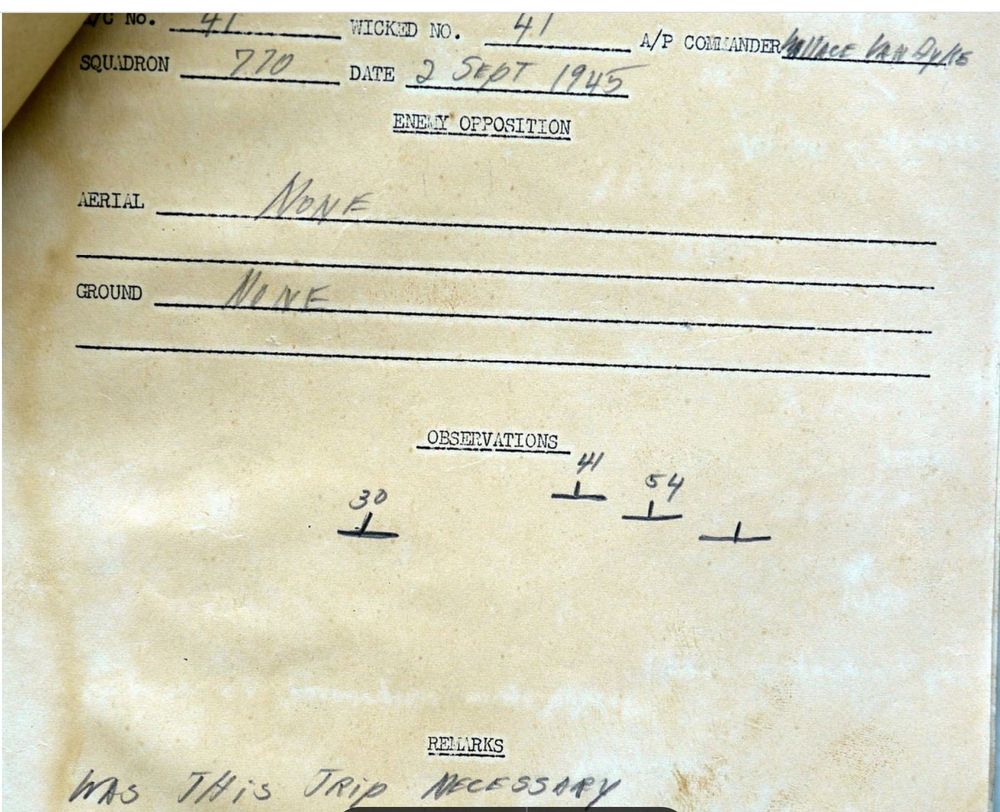 A/C No. 41 WICKED NO. 41 A/P COMMANDER WALLACE VAN DYKE
SQUADRON 770 DATE 2 SEPT 1945
ENEMY OPPOSITION
AERIAL NONE
GROUND NONE
OBSERVATIONS
41
54
30
REMARKS
WAS THIS TRIP NECESSARY